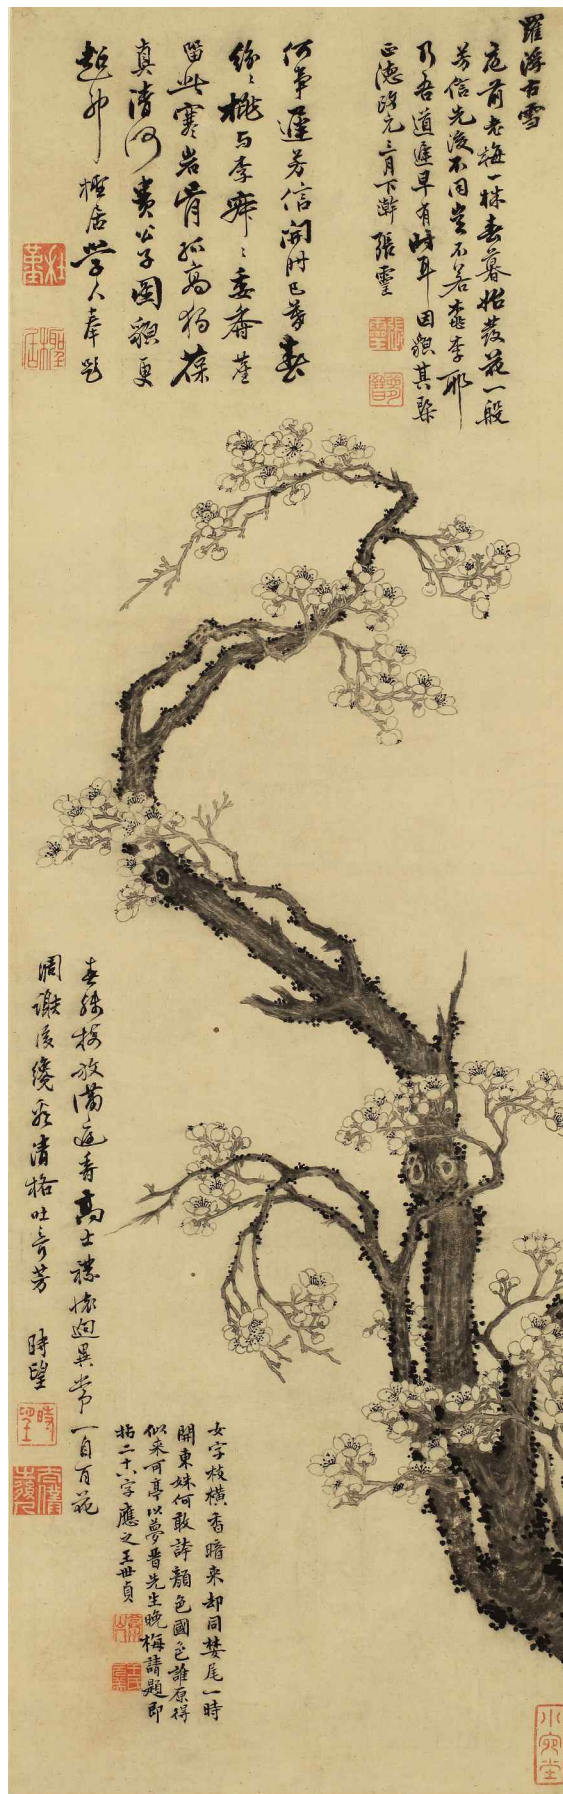 羅浮古雪
庭前老梅一株春暮始發花一般
芳信先後不同豈不若桃李耶
乃吾道遲早有時耳因貌其槩
正德改元三月下澣張靈
何事遲芳信開時已暮春
紛〻桃与李䍐〻委香塵
留此寒岩骨孤高獨葆
真清河貴公子圖貌更
超神 檉居學人奉題
杜堇
檉居
春殘梅放滿庭香高士襟懷迥異常一自百花
凋謝後纔看清格吐奇芳 時望
女字枝橫香暗来却同婪尾一時
開東妹何敢誇顏色國色誰原得
似来可亭以夢晋先生晚梅請題即
拈二十八字應之王世貞
小宛堂